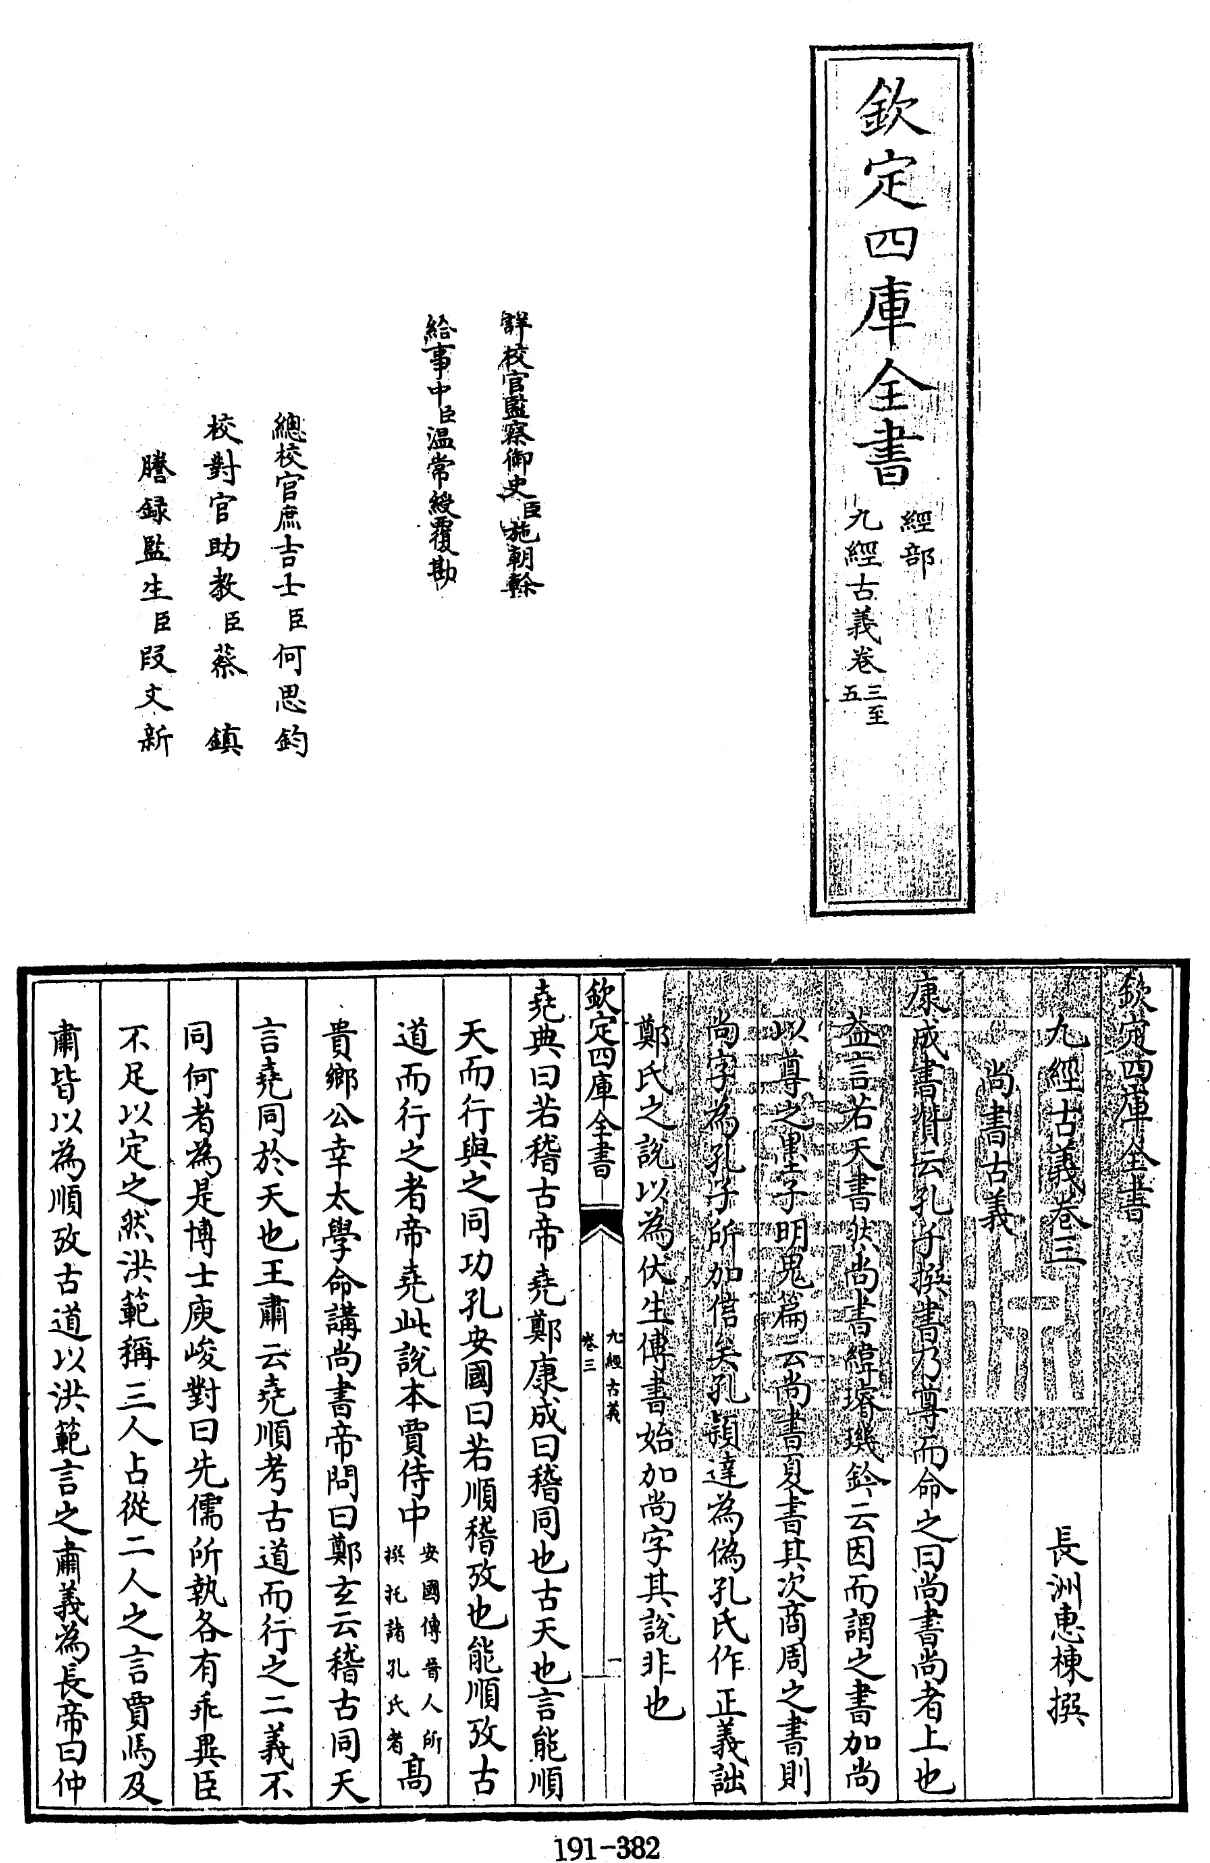 欽定四庫全書
經部
九經古義卷三至五
詳校官監察御史臣施朝榦
給事中臣温常綬覆勘
總校官庶吉士臣何思鈞
校對官助教臣蔡鎮
謄録監生臣段文新
欽定四庫全書
九經古義卷三
長洲惠棟撰
尚書古義
康成書贊云孔子撰書乃尊而命之曰尚書尚者上也
葢言若天書然尚書緯璿璣鈐云因而謂之書加尚
以尊之墨子明鬼篇云尚書夏書其次商周之書則
尚字為孔子所加信矣孔頴達為偽孔氏作正義詘
鄭氏之說以為伏生傳書始加尚字其說非也
欽定四庫全書
九經古義
卷三
一
堯典曰若稽古帝堯鄭康成曰稽同也古天也言能順
天而行與之同功孔安國曰若順稽攷也能順攷古
道而行之者帝堯此說本賈侍中安國傳晉人所撰托諸孔氏者高
貴鄉公幸太學命講尚書帝問曰鄭玄云稽古同天
言堯同於天也王肅云堯順考古道而行之二義不
同何者為是博士庾峻對曰先儒所執各有乖異臣
不足以定之然洪範稱三人占從二人之言賈馬及
肅皆以為順攷古道以洪範言之肅義為長帝曰仲
191-382